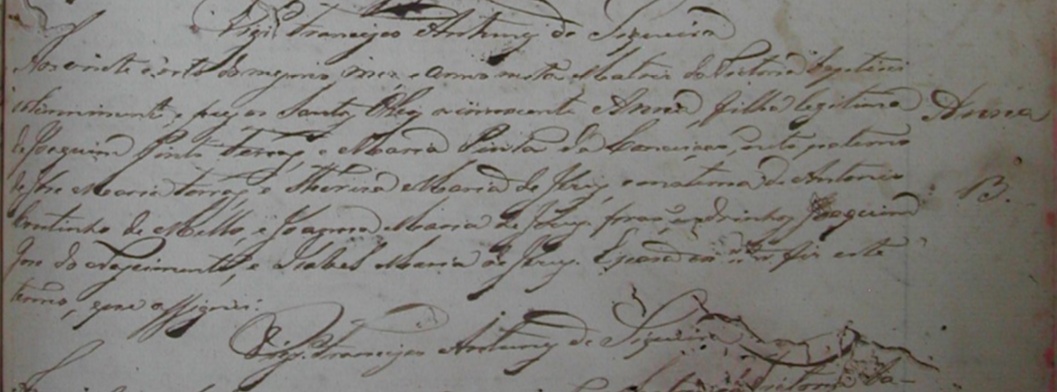 Vigº Francisco Antunes de Siqueira
Aos vinte e oito do mesmo mez, e anno nesta Matriz da Victoria baptizei
solemnemente, e puz os Santos Oleos a innocente Anna, filha legitima Anna
de Joaquim Pinto Terras, e Maria Pinta da Conceição, neta paterna
de José Maria Terras, e Thereza Maria de Jesus, e materna de Antonio B.
Coutinho de Mello, e Joanna Maria de Jesus, forão padrinhos Joaquim
José do Nascimento, e Isabel Maria de Jesus. E para fiz este
termo, que assignei.
Vigº Francisco Antunes de Siqueira
Victoria ba-